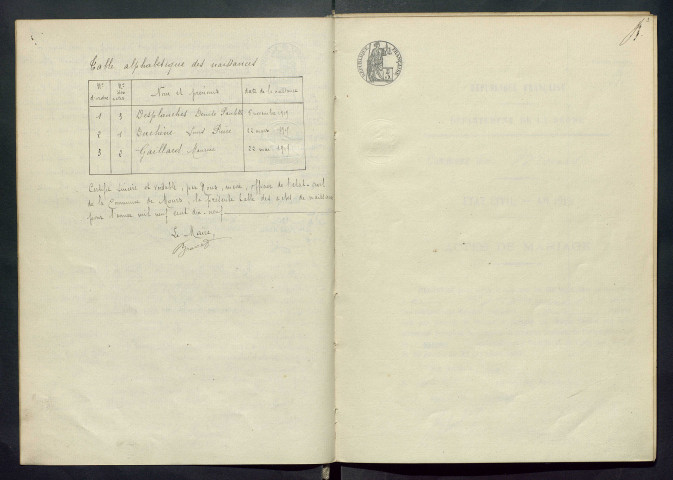 Table alphabétique des naissances
Nos d'ordre Nos des actes Noms et prénoms Date de la naissance
1 3 Desplanches Paulette 8 novembre 1919
2 1 Duchêne Louis 12 mars 1919
3 2 Gaillard Maurice 22 mai 1919
Certifié sincère et véritable, par nous, maire, officier de l'état-civil
de la Commune de la présente table des actes de naissance
pour l'année mil neuf cent dix-neuf
Le Maire,
RÉPUBLIQUE FRANÇAISE